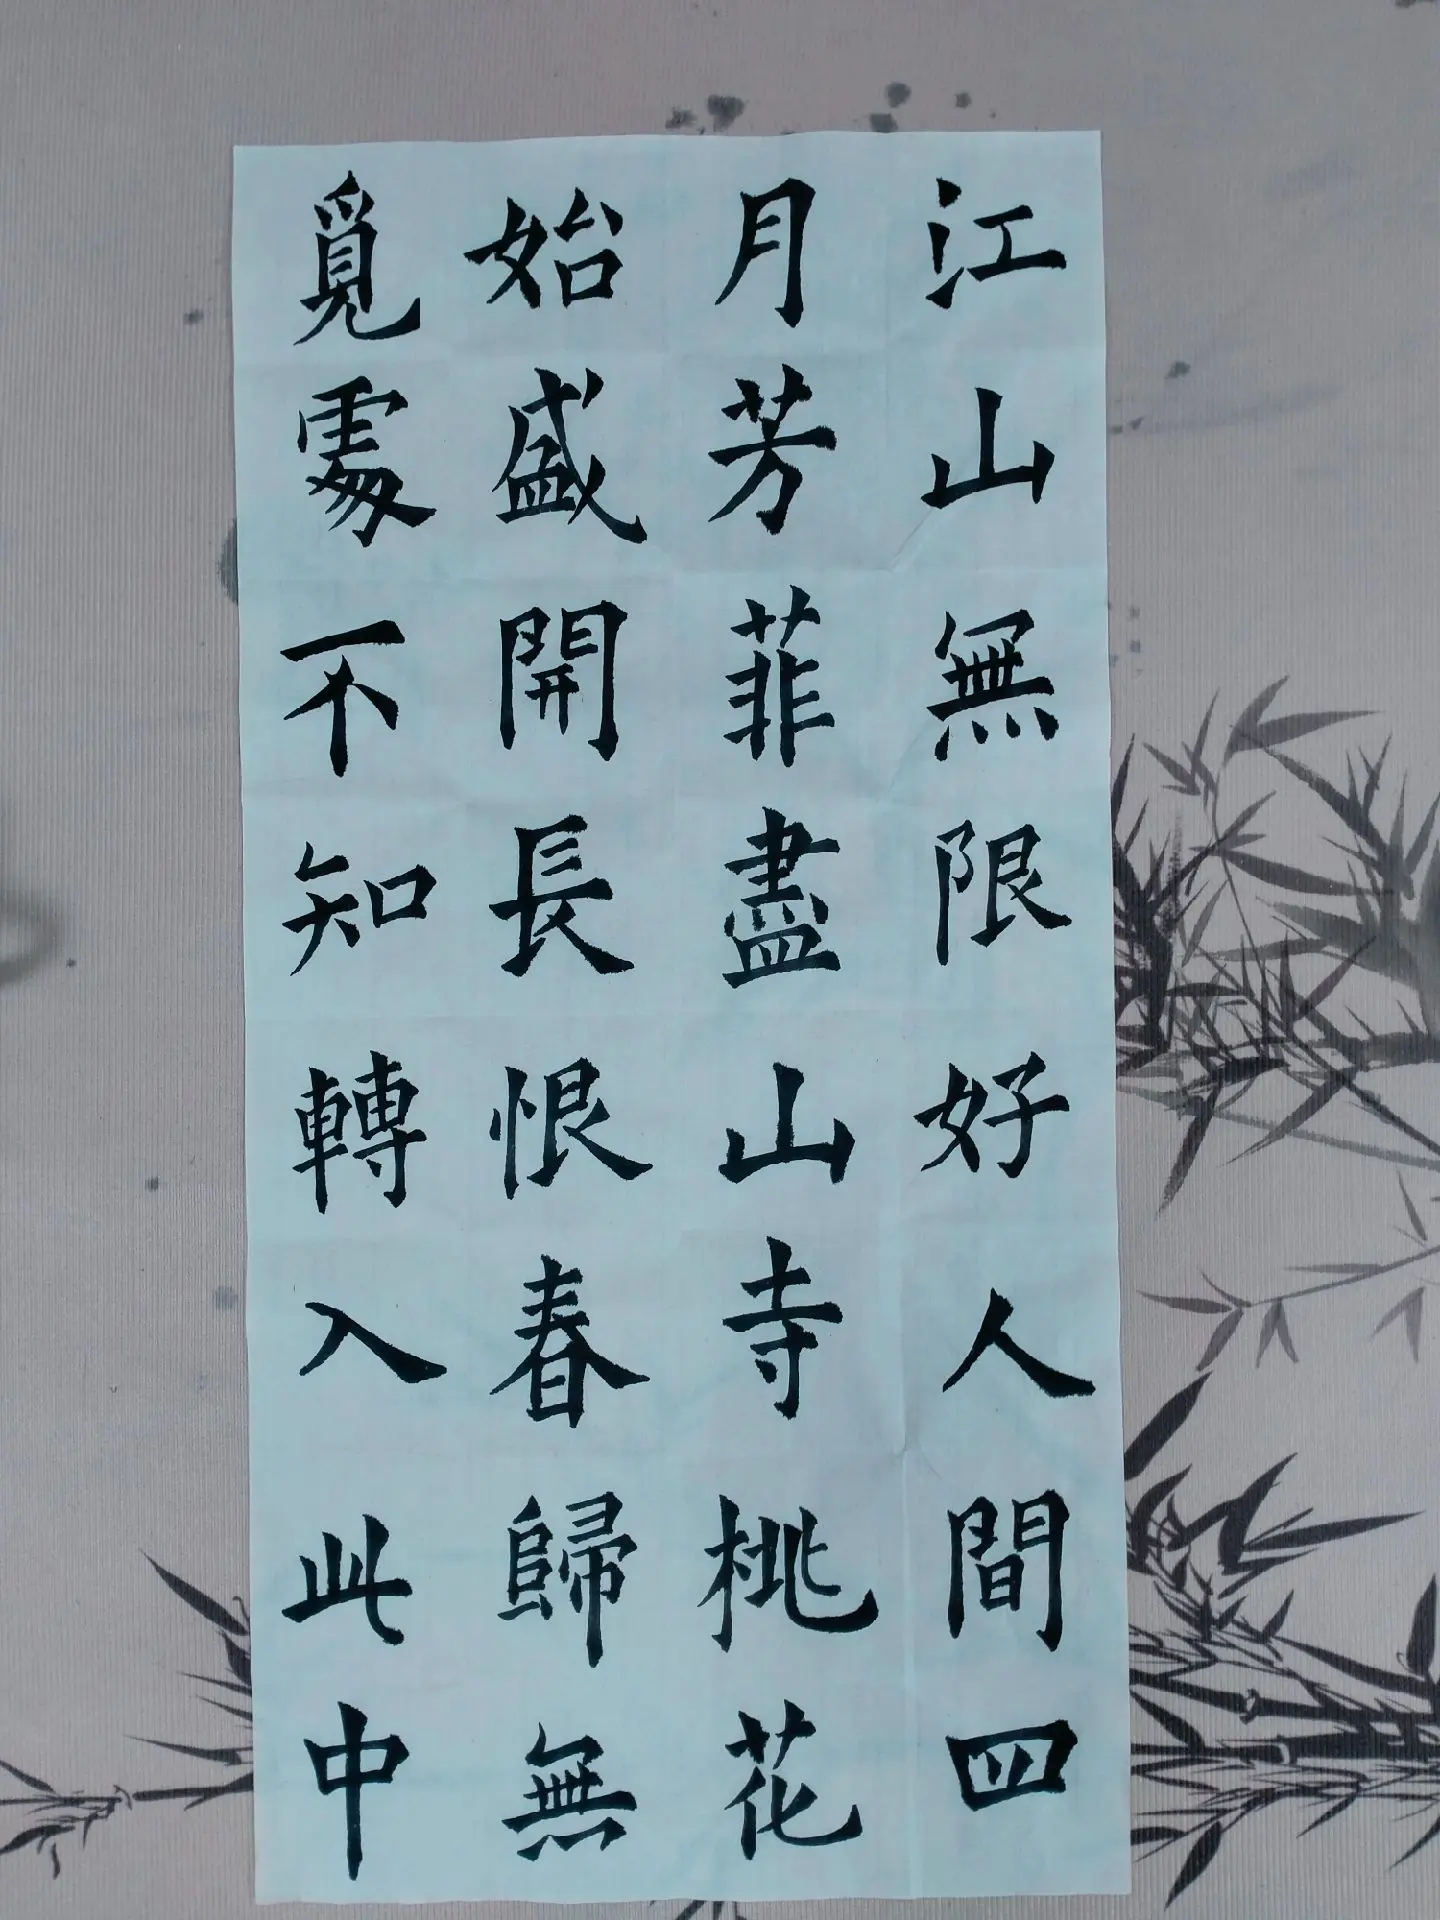 江山無限好人間四
月芳菲盡山寺桃花
始盛開長恨春歸無
覓處不知轉入此中